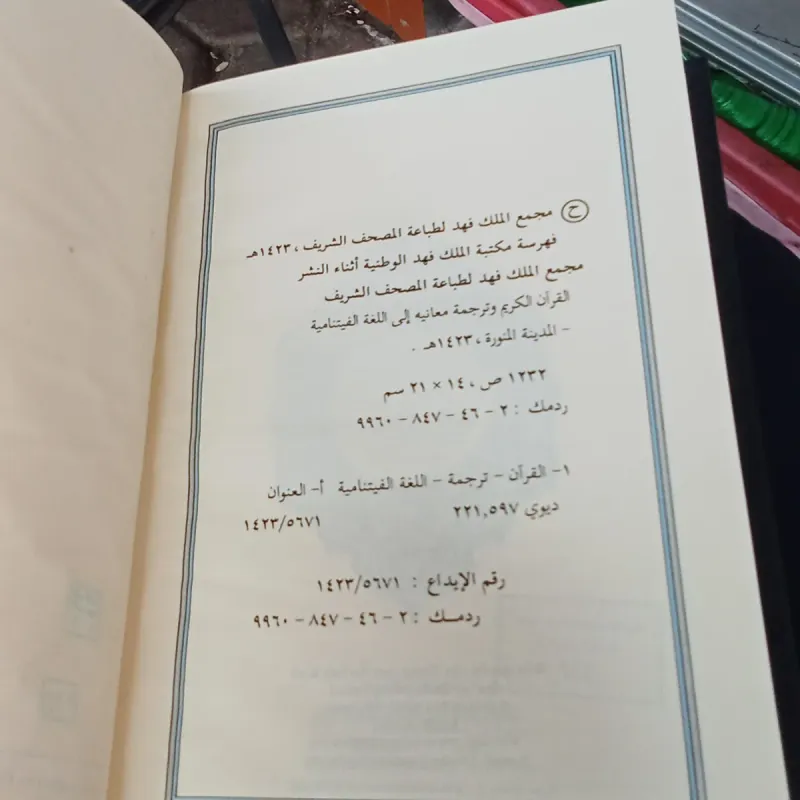 ح مجمع الملك فهد لطباعة المصحف الشريف ، ١٤٢٣هـ
فهرسة مكتبة الملك فهد الوطنية أثناء النشر
مجمع الملك فهد لطباعة المصحف الشريف
القرآن الكريم وترجمة معانيه إلى اللغة الفيتنامية
- المدينة المنورة ، ١٤٢٣هـ .
١٢٣٢ ص ، ١٤ × ٢١ سم
ردمك : ٢ - ٤٦ - ٨٤٧ - ٩٩٦٠
١- القرآن - ترجمة - اللغة الفيتنامية أ- العنوان
ديوي ٢٢١,٥٩٧ ١٤٢٣/٥٦٧١
رقم الإيداع : ١٤٢٣/٥٦٧١
ردمـك : ٢ - ٤٦ - ٨٤٧ - ٩٩٦٠